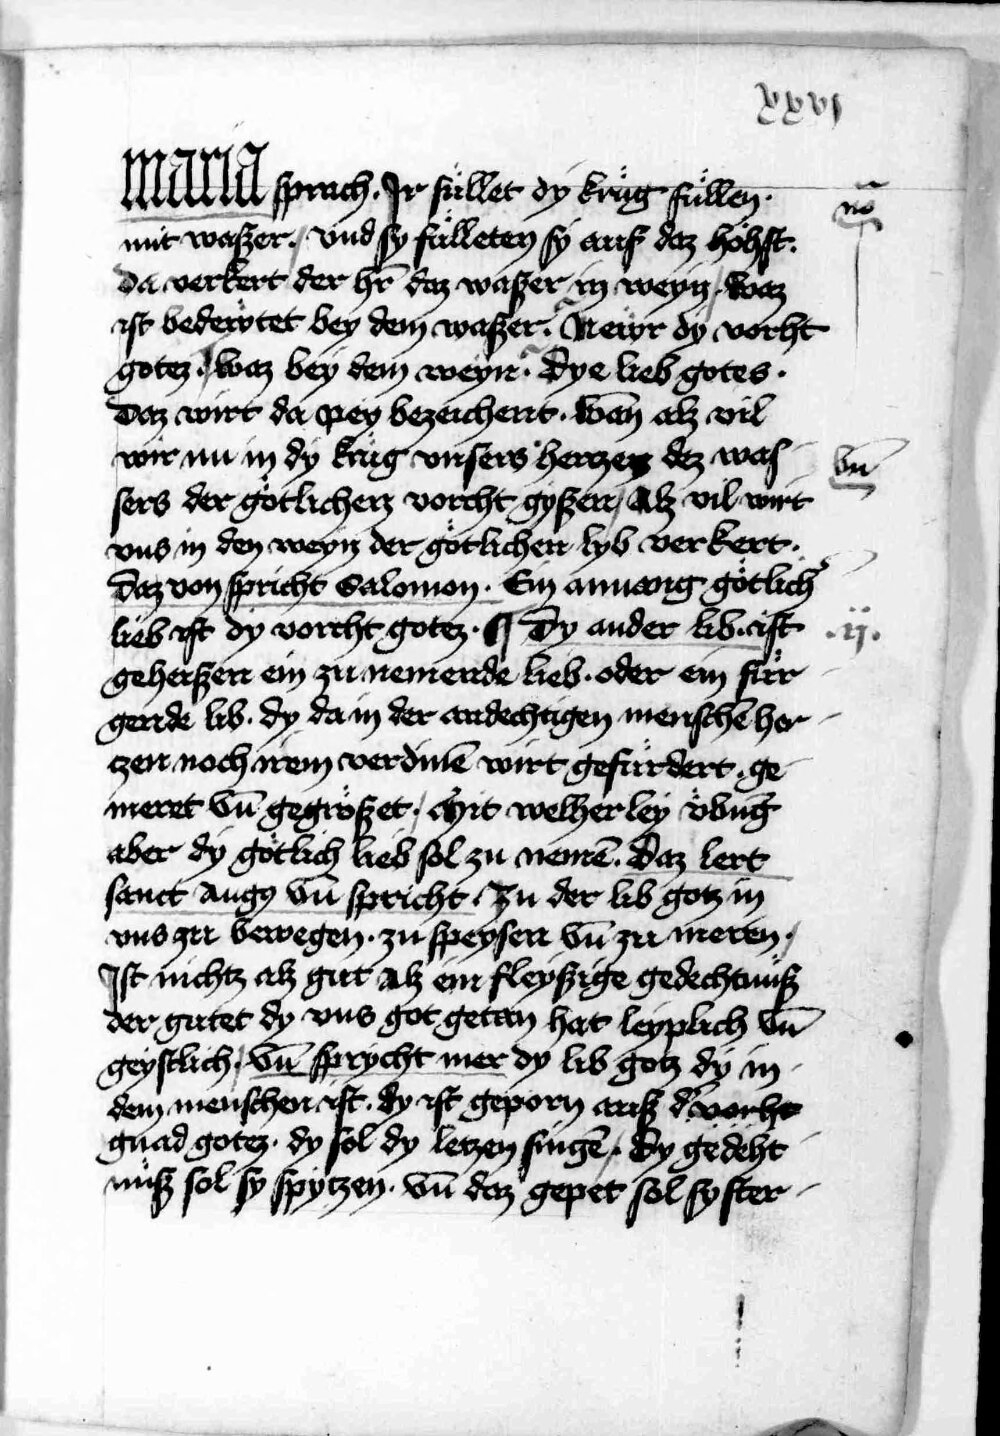 xxxvj
maria sprach. Jr füllet dÿ krüg füllen.
mit waßer / vnd sy fülleten sÿ auß daz höhst.
no̅
Da verkert der hr̅ daz waßer in weyn / waz
ist bedewtet bey dem waßer. Newr dÿ vorht
gotez. waz bey dem weyn. Dye lieb gotes.
Daz wirt da pey bezeichent. wan̅ alz vil
wir nu in dÿ krüg vnsers hertzen dez was
sers der götlichen vorcht gyßen / Alz vil wirt
vn̅
vns in den weyn der götlichen lyb verkert.
Daz von spricht Salomon. Ein anueng götlich
lieb ist dÿ vorcht gotez. ¶ Dy ander lib. ist
.ij.
geheißen ein zu nemende lieb. oder ein für
gende lib. dy da in der andechtigen mensche̅ her
tzen noch irem verdine̅ wirt gefürdert. ge
meret vn̅ gegrößet / Mit welherley vbu̅g
aber dy götlich lieb sol zu neme̅. Daz lert
sanct Augꝰ vn̅ spricht. Zu der lib gotz in
vns zu bewegen. zu speysen vn̅ zu meren.
Jst nichtz alz gut Alz ein fleyßige gedechtnüß
der gutet dy vns got getan hat leyplich vn̅
geystlich / vn̅ sprycht mer dy lib gotz dÿ in
dem menschen ist. dy ist geporn auß d' vorht
gnad gotez. dy sol dy letzen singe̅ / Dy gedeht
nüß sol sy spytzen. vn̅ daz gepet sol sy ster